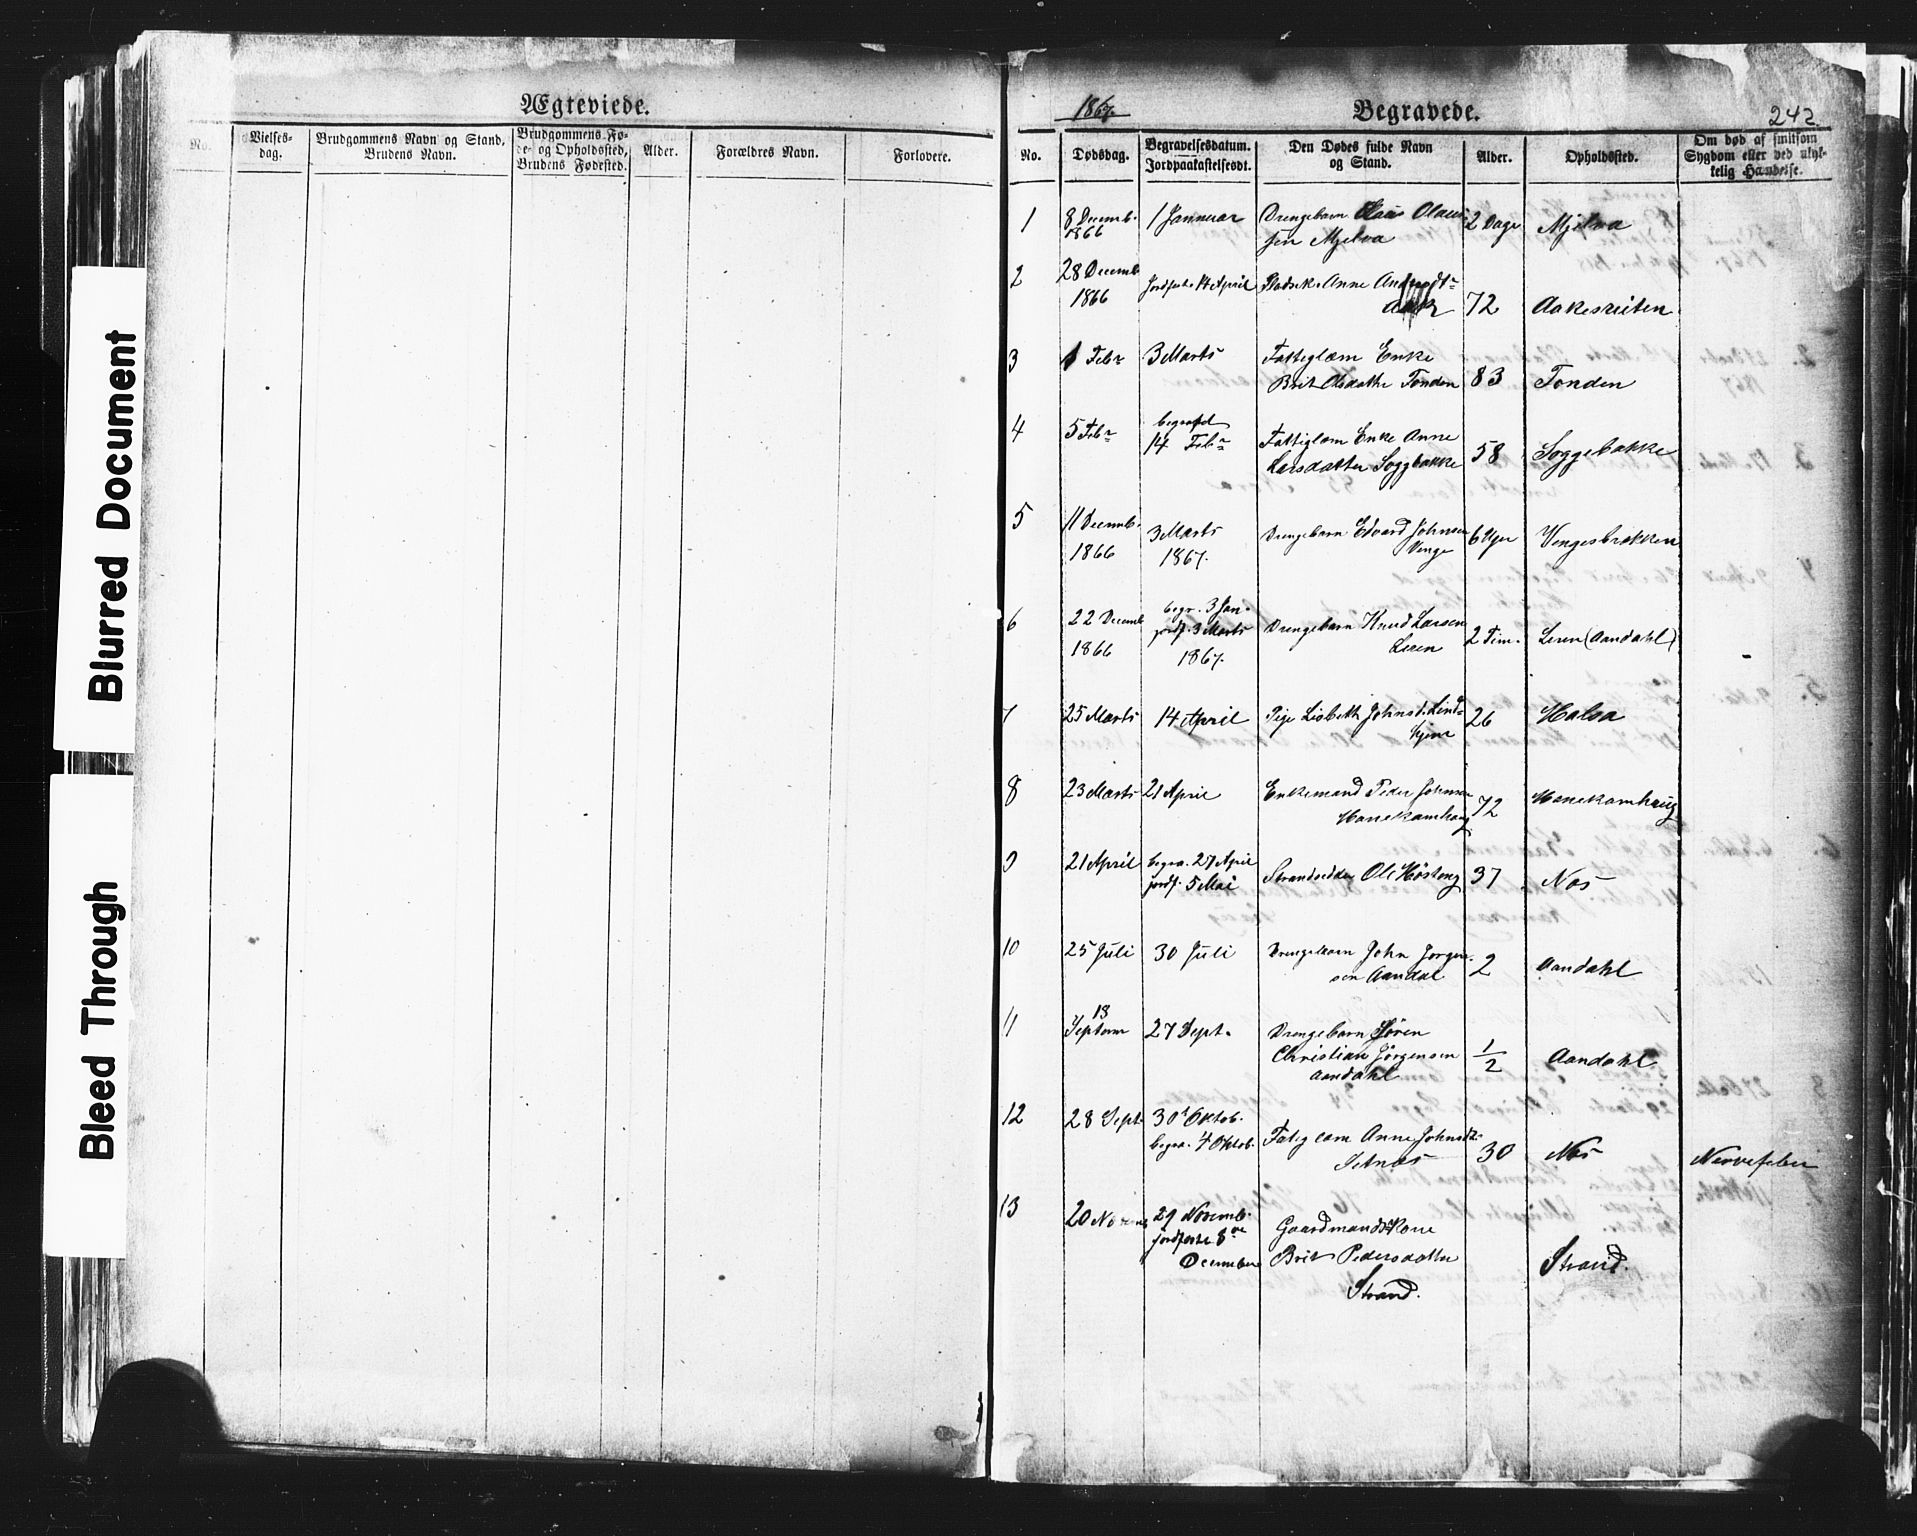 Blurred Document
Bleed Through
Ægteviede.
No.
Vielses-
dag.
Brudgommens Navn og Stand,
Brudens Navn.
Brudgommens Fø-
de- og Opholdssted,
Brudens Fødested.
Alder.
Forældres Navn.
Forlovere.
1867.
Begravede.
242
No.
Dødsdag.
Begravelsesdatum.
Jordpaakastelsesdt.
Den Dødes fulde Navn
og Stand.
Alder.
Opholdssted.
Om død af smitsom
Sygdom eller ved ulyk-
kelig Hændelse.
1 8 Decemb. 1 Januar Drengebarn Claus Olaus- 2 Dage Mjelva
1866 sen Mjelva
2 28 Decemb. Jordfæste 14 April Anne
1866 72 Aakesreiten
3 1 Febr 3 Marts Fattiglem Enke
Brit Olsdatter Tonden 83 Tonden
4 5 Febr begravet
14 Febr Fattiglem Enke Anne
Larsdatter Soggbakke 58 Soggebakke
5 11 Decemb. 3 Marts Drengebarn Edvard Johnsen 6 Uger Vengesbakken
1866 1867. Venge
6 22 Decemb begr. 3 Jan.
jordf. 3 Marts Drengebarn Knud Larsen 2 Tim. Leren (Aandahl)
1866 1867. Leren
7 25 Marts 14 April Pige Lisbeth Johnsd. Lind- 26 Halsa
hjem
8 23 Marts 21 April Enkemand Peder Johnsen 72 Hanekamhaug
Hanekamhaug
9 21 April begra. 27 April
jordf. 5 Mai Strandsidder Ole Høsteng 37 Næs
10 25 Juli 30 Juli Drengebarn John Jørgen- 2 Aandahl
sen Aandal
11 13
Septem 27 Sept. Drengebarn Søren
Christian Jørgensen 1/2 Aandahl
Aandahl
12 28 Sept. 30t Oktob.
begra. 4 Oktob. Fatiglem Anne Johnsdt. 30 Næs Nervefeber
Setnæs
13 20 Novem 29 Novemb.
jordfæste 8de Gaardmandskone
December Brit Pedersdatter Strand.
Strand.